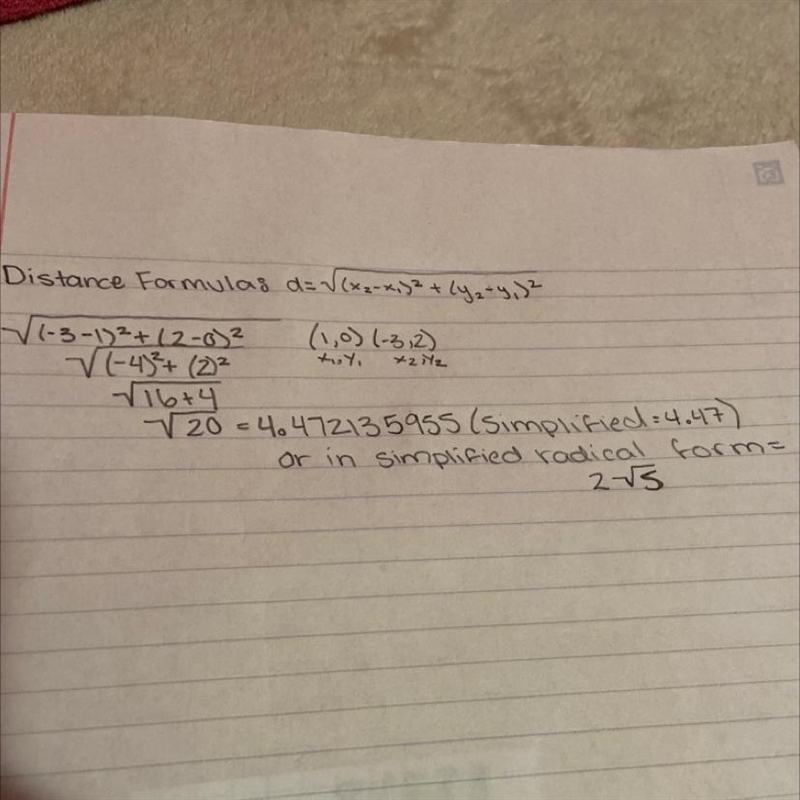 Distance Formula: d=√(x₂-x₁)²+(y₂-y₁)²
√(-3-1)²+(2-0)² (1,0) (-3,2)
√(-4)²+(2)² x₁,y₁ x₂,y₂
√16+4
√20 = 4.472135955 (Simplified: 4.47)
or in simplified radical form=
2√5